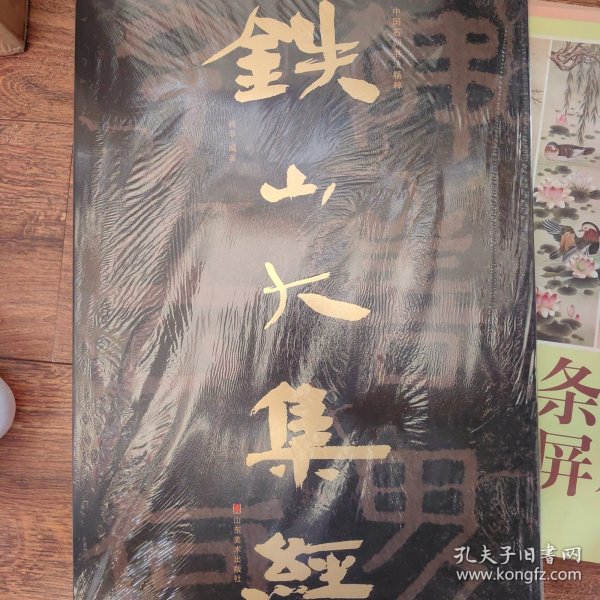 中国石刻书法精粹
鉄山大集經
山东美术出版社
条屏
孔夫子旧书网
www.kongfz.com